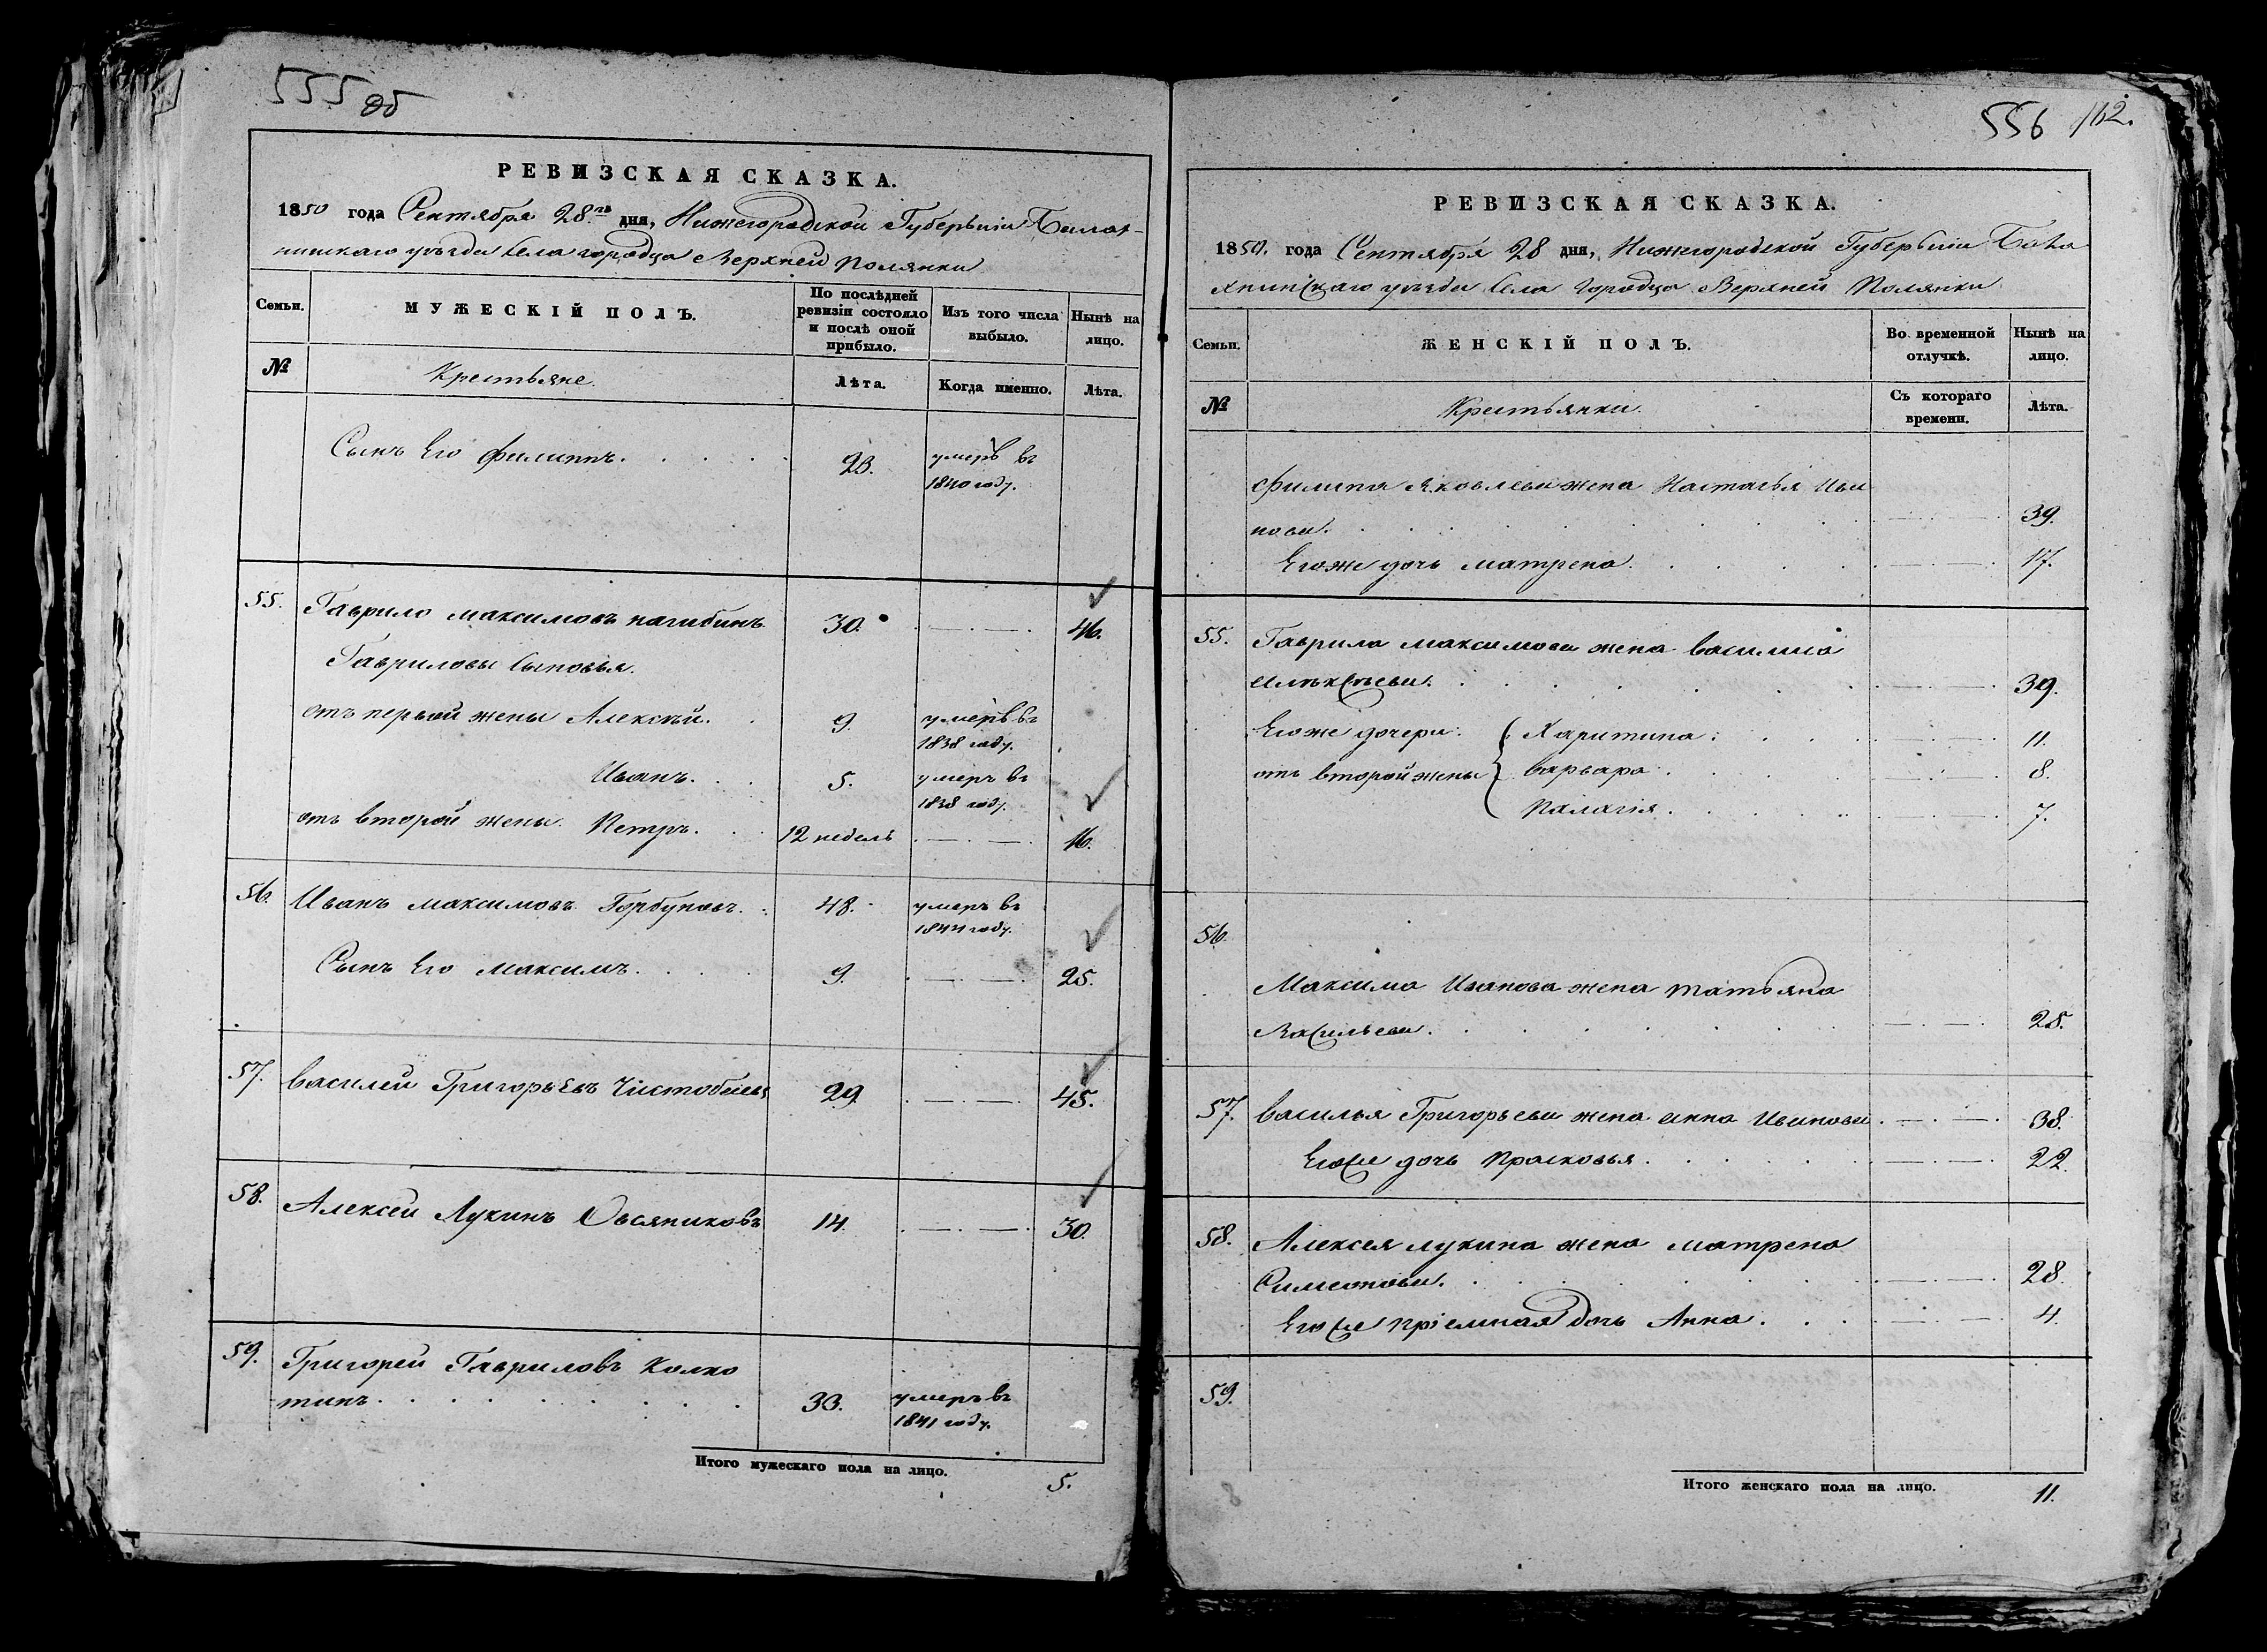 555 об
РЕВИЗСКАЯ СКАЗКА.
1850 года Сентября 28го дня, Нижегородской Губернiи Балах-
нинскаго уѣзда Села городца Верхней Полянки
Семьи.
МУЖЕСКІЙ ПОЛЪ.
По послѣдней
ревизіи состояло
и послѣ оной
прибыло.
Изъ того числа
выбыло.
Нынѣ на
лицо.
№
Крестьяне.
Лѣта.
Когда именно.
Лѣта.
Сынъ Его филиппъ. 23. умеръ въ
1840 году.
55. Гаврило максимовъ нагибинъ. 30. 46.
Гавриловы Сыновья.
отъ первой жены Алексѣй. 9. умеръ въ
1838 году.
Иванъ. 5. умеръ въ
1838 году.
отъ второй жены Петръ. 12 недель 16.
56. Иванъ максимовъ Горбуновъ. 48. умеръ въ
1844 году.
Сынъ Его максимъ. 9. 25.
57. василей Григорьевъ 29 45.
58. Алексей Лукинъ Овсяниковъ 14. 30.
59. Григорей Гавриловъ Колпо
тинъ. 33. умеръ въ
1841 году.
Итого мужескаго пола на лицо. 5.
556 162.
РЕВИЗСКАЯ СКАЗКА.
1850. года Сентября 28 дня, Нижегородской Губернiи Бала
хнинскаго уѣзда Села Городца Верхней Полянки
Семьи.
ЖЕНСКІЙ ПОЛЪ.
Во временной
отлучкѣ.
Нынѣ на
лицо.
№
Крестьянки.
Съ котораго
времени.
Лѣта.
Филипа Яковлева жена Настасья Ива
нова. 39.
Егоже дочь матрена. 17.
55. Гаврила максимова жена василиса
алѣксѣева. 39.
Егоже дочери: Харитина: 11.
отъ второй жены варвара. 8.
Палагія. 7.
56.
Максима Иванова жена татьяна
Васильева. 28.
57. василья Григорьева жена анна Иванова 38.
Егоже дочь прасковья. 22.
58. Алексея лукина жена матрена
Симеонова. 28.
Егоже прiемная дочь Анна. 4.
59.
Итого женскаго пола на лицо. 11.